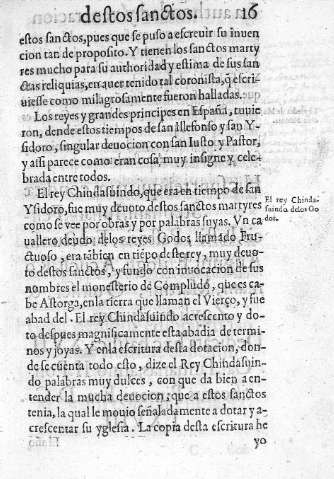 destos sanctos. 16
estos sanctos, pues que se puso a escreuir su inuen
cion tan de proposito. Y tienen los sanctos marty
res mucho para su authoridad y estima de sus san
ctas reliquias, en auer tenido tal coronista, q̃ escri-
uiesse como milagrosamente fueron halladas.
Los reyes y grandes principes en España, tuuie
ron, dende estos tiempos de san Ilefonso y san Y-
sidoro, singular deuocion con san Iusto y Pastor,
y assi parece como eran cosa muy insigne y cele-
brada entre todos.
El rey Chindasuindo, que era en tiempo de san
Ysidoro, fue muy deuoto destos sanctos martyres
El rey Chinda-
suindo delos Go
dos.
como se vee por obras y por palabras suyas. Vn ca
uallero deudo delos reyes Godos llamado Fru-
ctuoso, era tãbien en tiẽpo deste rey, muy deuo-
to destos sanctos, y fundo con inuocacion de sus
nombres el monesterio de Compludo, que es ca-
be Astorga, en la tierra que llaman el Vierço, y fue
abad del. El rey Chindasuindo acrescento y do-
to despues magnificamente esta abadia de termi-
nos y joyas. Y en la escritura desta dotacion, don-
de se cuenta todo esto, dize el Rey Chindasuin-
do palabras muy dulces, con que da bien a en-
tender la mucha deuocion, que a estos sanctos
tenia, la qual le mouio señaladamente a dotar y a-
crescentar su yglesia. La copia desta escritura he
yo